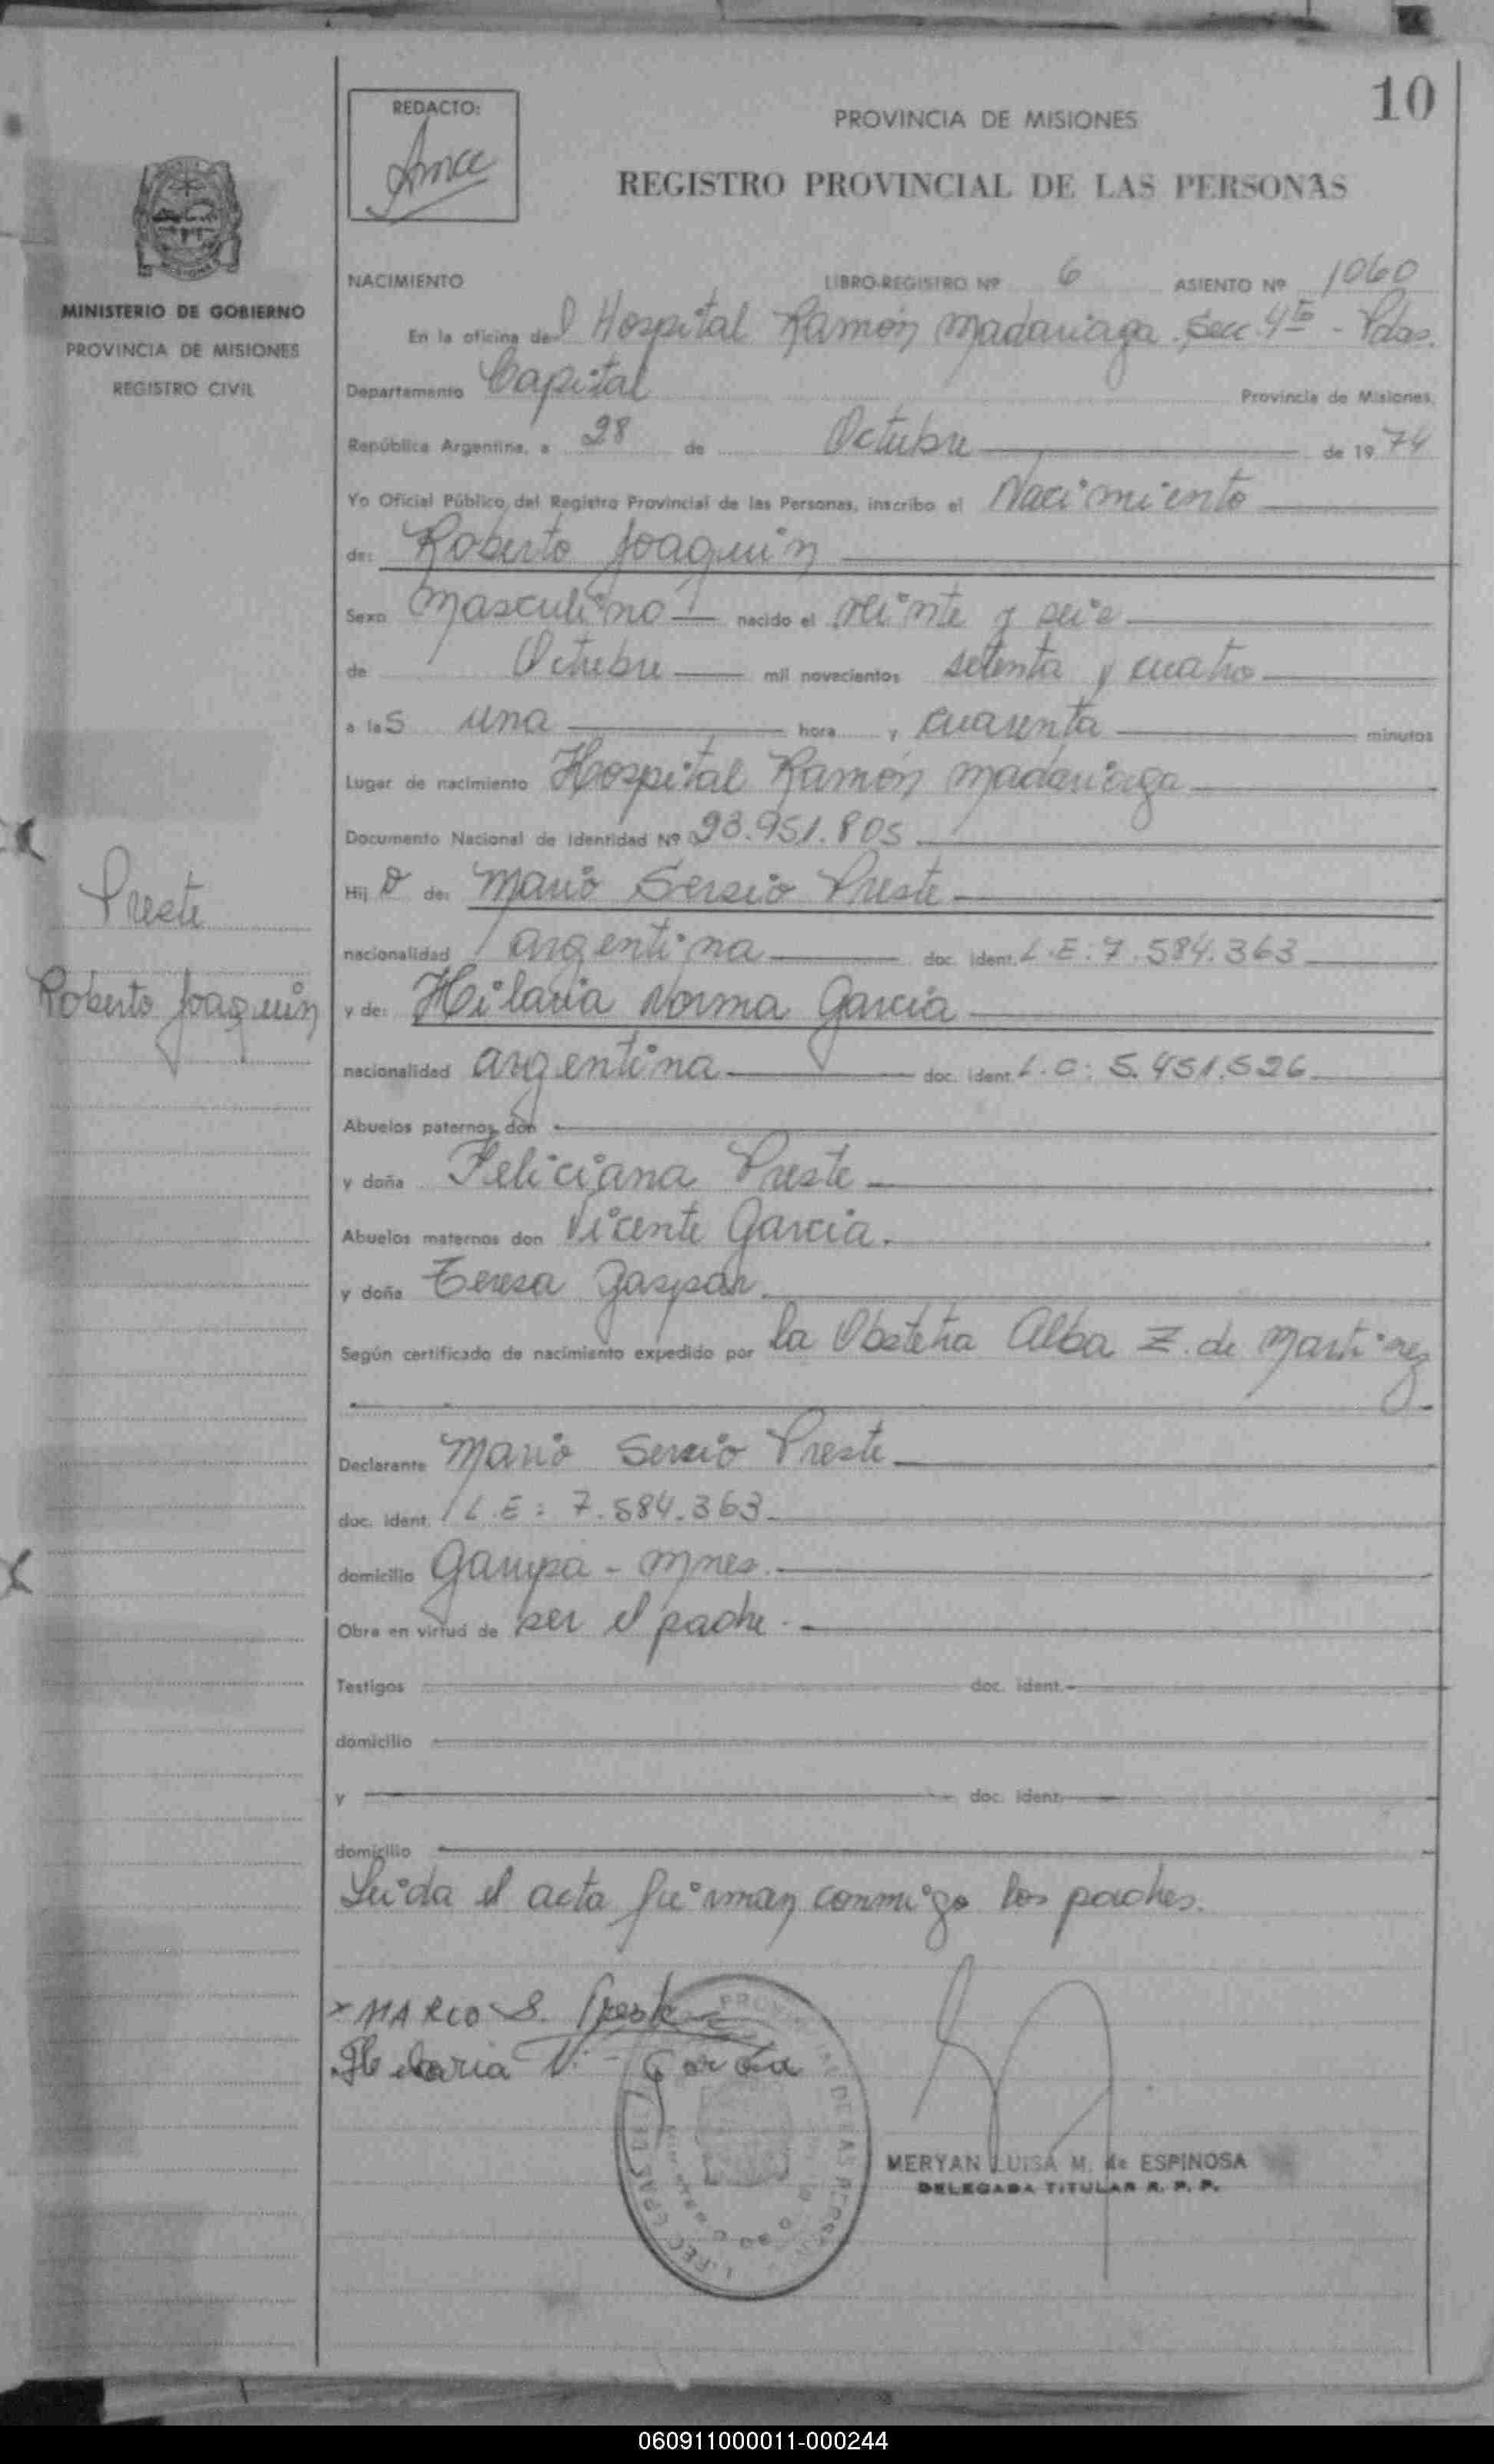 10
REDACTO:
PROVINCIA DE MISIONES
REGISTRO PROVINCIAL DE LAS PERSONAS
MINISTERIO DE GOBIERNO
PROVINCIA DE MISIONES
REGISTRO CIVIL
NACIMIENTO LIBRO-REGISTRO Nº 6 ASIENTO Nº 1060
En la oficina del Hospital Ramón Madariaga Secc 4ta - Pdas.
Departamento Capital Provincia de Misiones,
República Argentina, a 28 de Octubre de 1974
Yo Oficial Público del Registro Provincial de las Personas, inscribo el Nacimiento
de: Roberto Joaquin
Sexo Masculino nacido el veinte y seis
de Octubre mil novecientos setenta y cuatro
a las una hora y cuarenta minutos
Lugar de nacimiento Hospital Ramón Madariaga
Documento Nacional de Identidad Nº 23.951.805
Hijo de: Mario Sersio Preste
nacionalidad argentina doc. ident. L.E: 7.584.363
y de: Hilaria Norma Garcia
nacionalidad argentina doc. ident. L.C: 5.451.526
Preste
Roberto Joaquin
Abuelos paternos don
y doña Feliciana Preste
Abuelos maternos don Vicente Garcia.
y doña Teresa Gaspar.
Según certificado de nacimiento expedido por la Obstetra Alba Z. de Martinez
Declarante Mario Sersio Preste
doc. ident. L.E: 7.584.363
domicilio Garupa - Mnes.
Obra en virtud de ser el padre.
Testigos doc. ident.
domicilio
y doc. ident.
domicilio
Leida el acta fuirman conmigo los padres.
x MARCO S. Preste
Hilaria N. Garcia
MERYAN LUISA M. de ESPINOSA
DELEGADA TITULAR R. P. P.
060911000011-000244